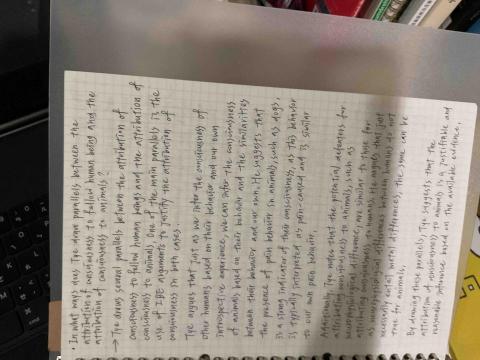 • In what ways does Tye draw parallels between the
attribution of consciousness to fellow human being and the
attribution of consciousness to animals?
→ Tye draws several parallels between the attribution of
consciousness to fellow human beings and the attribution of
consciousness to animals. One of the main parallels is the
use of IBE arguments to justify the attribution of
consciousness in both cases.
Tye argues that just as we infer the consciousness of
other humans based on their behavior and our own
introspective experience, we can infer the consciousness
of animals based on their behavior and the similarities
between their behavior and our own. He suggests that
the presence of pain behavior in animals, such as dogs,
is a strong indicator of their consciousness, as this behavior
is typically interpreted as pain-caused and is similar
to our own pain behavior.
Additionally, Tye notes that the potential defeaters for
attributing consciousness to animals, such as
are similar to those for
attributing consciousness to humans. He argues that just
as neurophysiological differences between humans do not
necessarily entail mental differences, the same can be
true for animals.
By drawing these parallels, Tye suggests that the
attribution of consciousness to animals is a justifiable and
reasonable inference based on the available evidence.